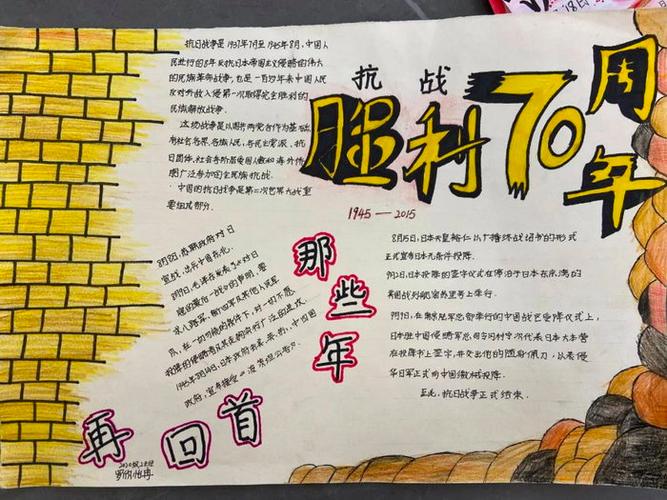 抗战
胜利70周年
1945—2015
抗日战争是1937年7月至1945年8月,中国人
民进行的8年反抗日本帝国主义侵略的伟大
的民族革命战争,也是一百多年来中国人民
反对外敌入侵第一次取得完全胜利的
民族解放战争。
这场战争是以国共两党合作为基础,
有社会各界、各族人民、各民主党派、抗
日团体、社会各阶层爱国人士和海外侨
胞广泛参加的全民族抗战。
中国的抗日战争是第二次世界大战重
要组成部分.
那些年
再回首
8月8日,苏联政府对日
宣战,出兵中国东北.
8月9日,毛泽东发表了《对日
寇的最后一战》的声明,要
求八路军、新四军及其他人民军
队,在一切可能的条件下,对一切不愿
投降的侵略者及其走狗实行广泛的进攻.
1945年8月14日,日本政府照会美、英、苏、中四国
政府,宣布接受《波茨坦公告》.
8月15日,日本天皇裕仁以广播终战诏书的形式
正式宣布日本无条件投降.
9月2日,日本投降的签字仪式在停泊于日本东京湾的
美国战列舰密苏里号上举行.
9月9日,在南京陆军总部举行的中国战区受降仪式上,
日本驻中国侵略军总司令冈村宁次代表日本大本营
在投降书上签字,并交出他的随身佩刀,以表侵
华日军正式向中国缴械投降.
至此,抗日战争正式结束.